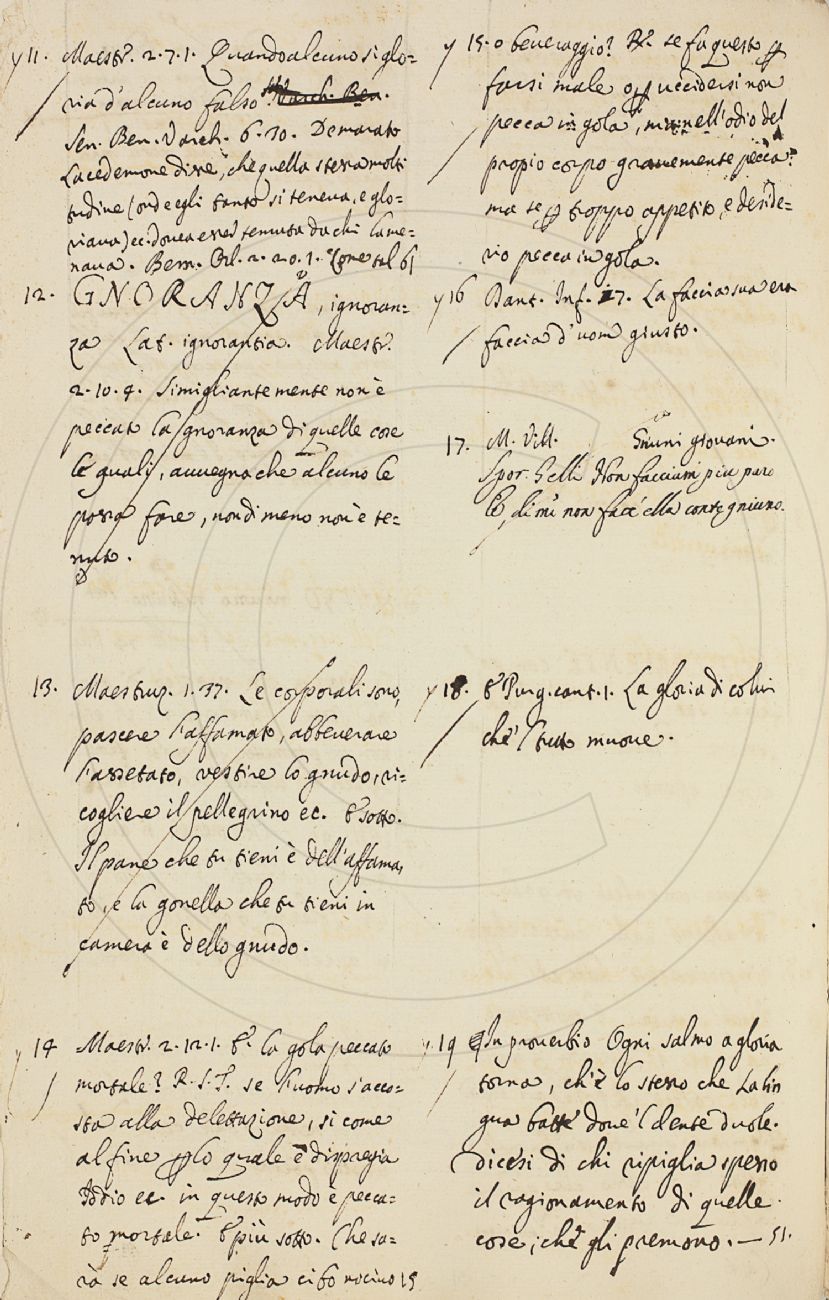 y 11. Maestr. 2. 7. 1. Quando alcuno si glo=
ria d'alcuno falso
Sen. Ben. Varch. 6. 30. Demarato
Lacedemone disse, che quella stessa molti
tudine (onde egli tanto si teneva, e glo=
riava) ec. dovea esser tenuta da chi l'ame=
nava. Bern. Orl. 2. 20. 1.
12. GNORANZA, ignoran=
za Lat. ignorantia. Maestr.
2. 10. 4. Simigliantemente non è
peccato la gnoranza di quelle cose
le quali, avvegnachè alcuno le
possa fare, nondimeno non è te=
nuto.
13. Maestruz. 1. 37. Le corporali sono,
pascere l'affamato, abbeverare
l'assetato, vestire lo gnudo, ri=
cogliere il pellegrino ec. E sotto.
Il pane che tu tieni è dell'affama,
to, e la gonella che tu tieni in
camera è dello gnudo.
14 Maestr. 2. 12. 1. E' la gola peccato
mortale? R. S. T. se l'uomo s'acco=
sta alla delettazione, sì come
al fine p lo quale e' dispregia
Iddio ec. in questo modo è pecca=
to mortale. E più sotto. Che sa=
rà se alcuno piglia cibo nocivo 15
y 15. o beveraggio? R. se fa questo p
farsi male o p uccidersi non
pecca in gola, nell'odio del
propio corpo gravemente pecca:
ma se p troppo appetito, e deside=
rio pecca in gola.
y 16 Dant. Inf. 17. La faccia sua era
faccia d'uom giusto.
17. M. Vill. Gnuni giovani.
Spor. Gelli Non facciam più paro
le, dimi non face' ella conte gniuno.
y 18. E Purg. cant. 1. La gloria di colui
che 'l tutto muove.
y 19 In proverbio Ogni salmo a gloria
torna, ch'è lo stesso che La lin
gua batte dove 'l dente duole.
dicesi di chi ripiglia spesso
il ragionamento di quelle
cose, che gli premono. — 51.